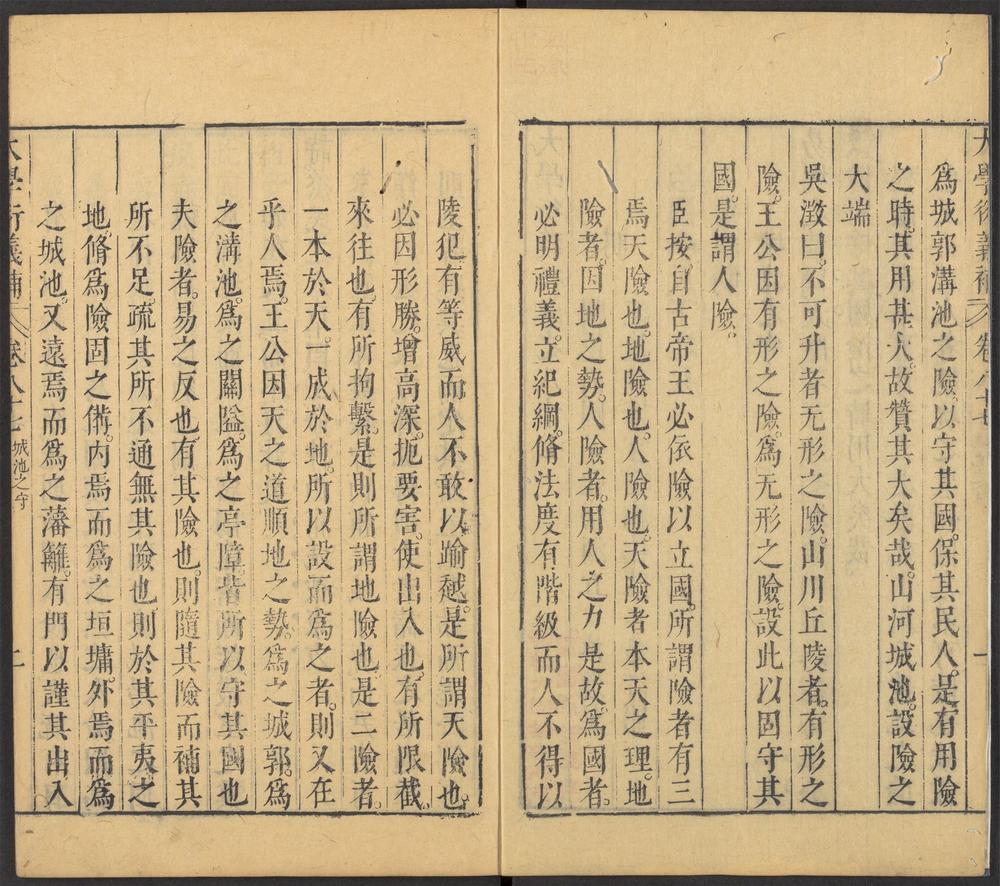 大學衍義補 卷八十七 一
爲城郭溝池之險以守其國。保其民人。是有用險
之時。其用甚大。故贊其大矣哉。山河城池。設險之
大端
吳澂曰。不可升者无形之險。山川丘陵者。有形之
險。王公因有形之險。爲无形之險。設此以固守其
國。是謂人險。
臣按自古帝王必依險以立國。所謂險者有三
焉。天險也。地險也。人險也。天險者本天之理。地
險者。因地之勢。人險者。用人之力。是故。爲國者。
必明禮義。立紀綱。脩法度。有階級而人不得以
陵犯有等威而人不敢以踰越。是所謂天險也。
必因形勝。增高深。扼要害。使出入也。有所限截。
來往也。有所拘繫。是則所謂地險也。是二險者。
一本於天。一成於地。所以設而爲之者。則又在
乎人焉。王公因天之道。順地之勢。爲之城郭。爲
之溝池。爲之關隘。爲之亭障。皆所以守其國也
夫險者。易之反也。有其險也。則隨其險而補其
所不足。疏其所不通。無其險也。則於其平夷之
地。脩爲險固之備。内焉而爲之垣墉。外焉而爲
之城池。又遠焉而爲之藩籬。有門以謹其出入
大學衍義補 卷八十七 城池之守 二